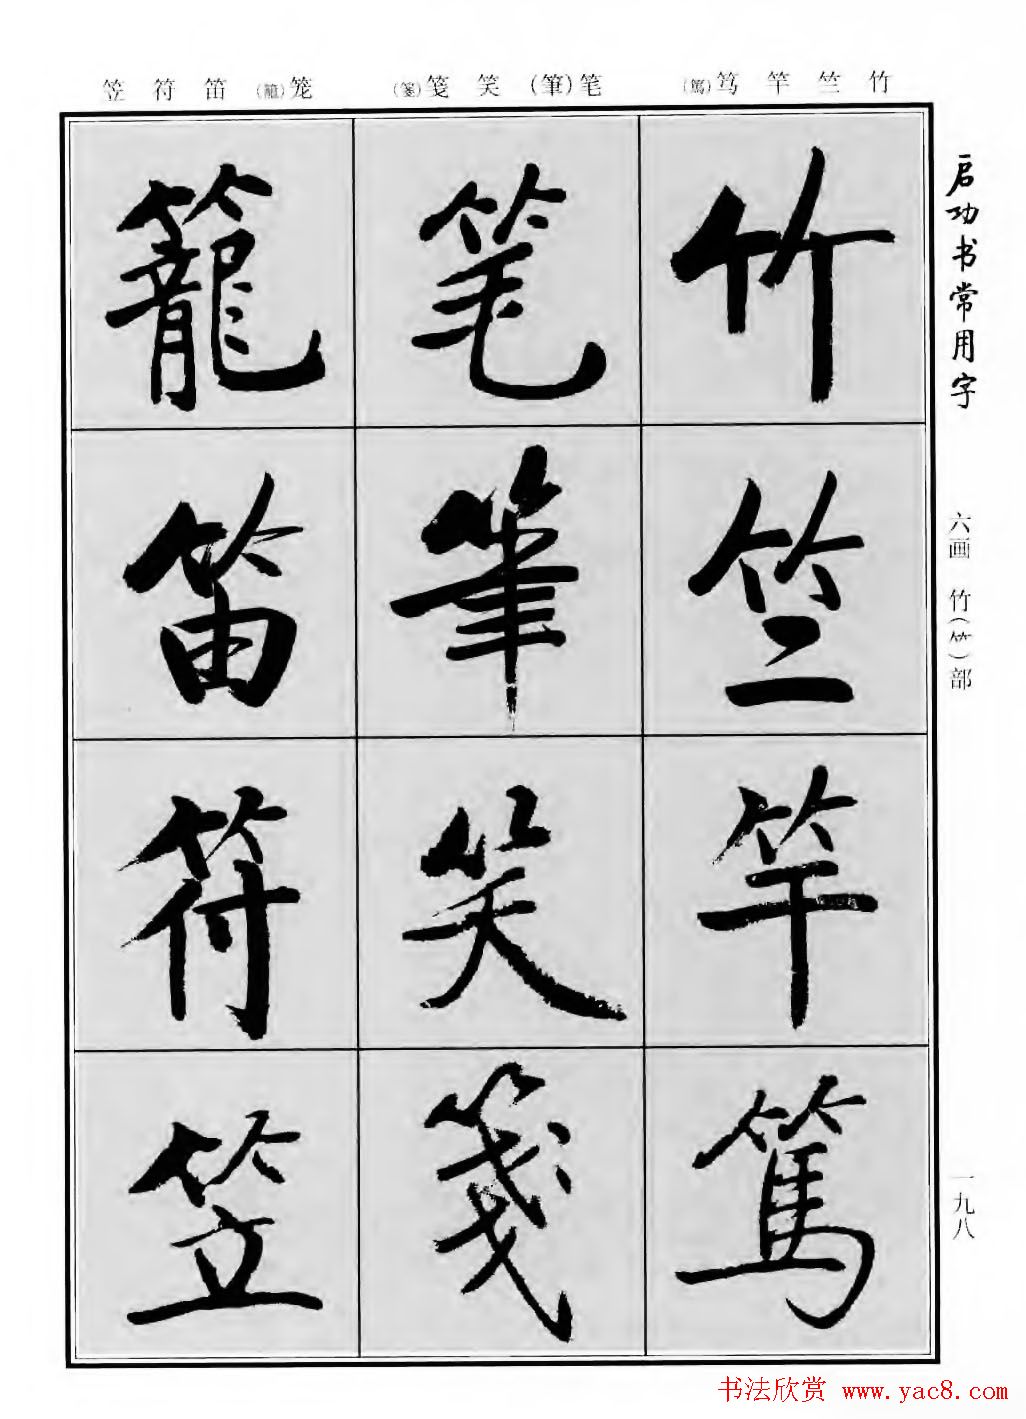 竹 竺 竿 笃(篤)
笔(筆) 笑 笺(箋)
笼(籠) 笛 符 笠
启功书常用字
六画 竹(⺮)部
一九八
竹
竺
竿
篤
笔
筆
笑
箋
籠
笛
符
笠
书法欣赏 www.yac8.com